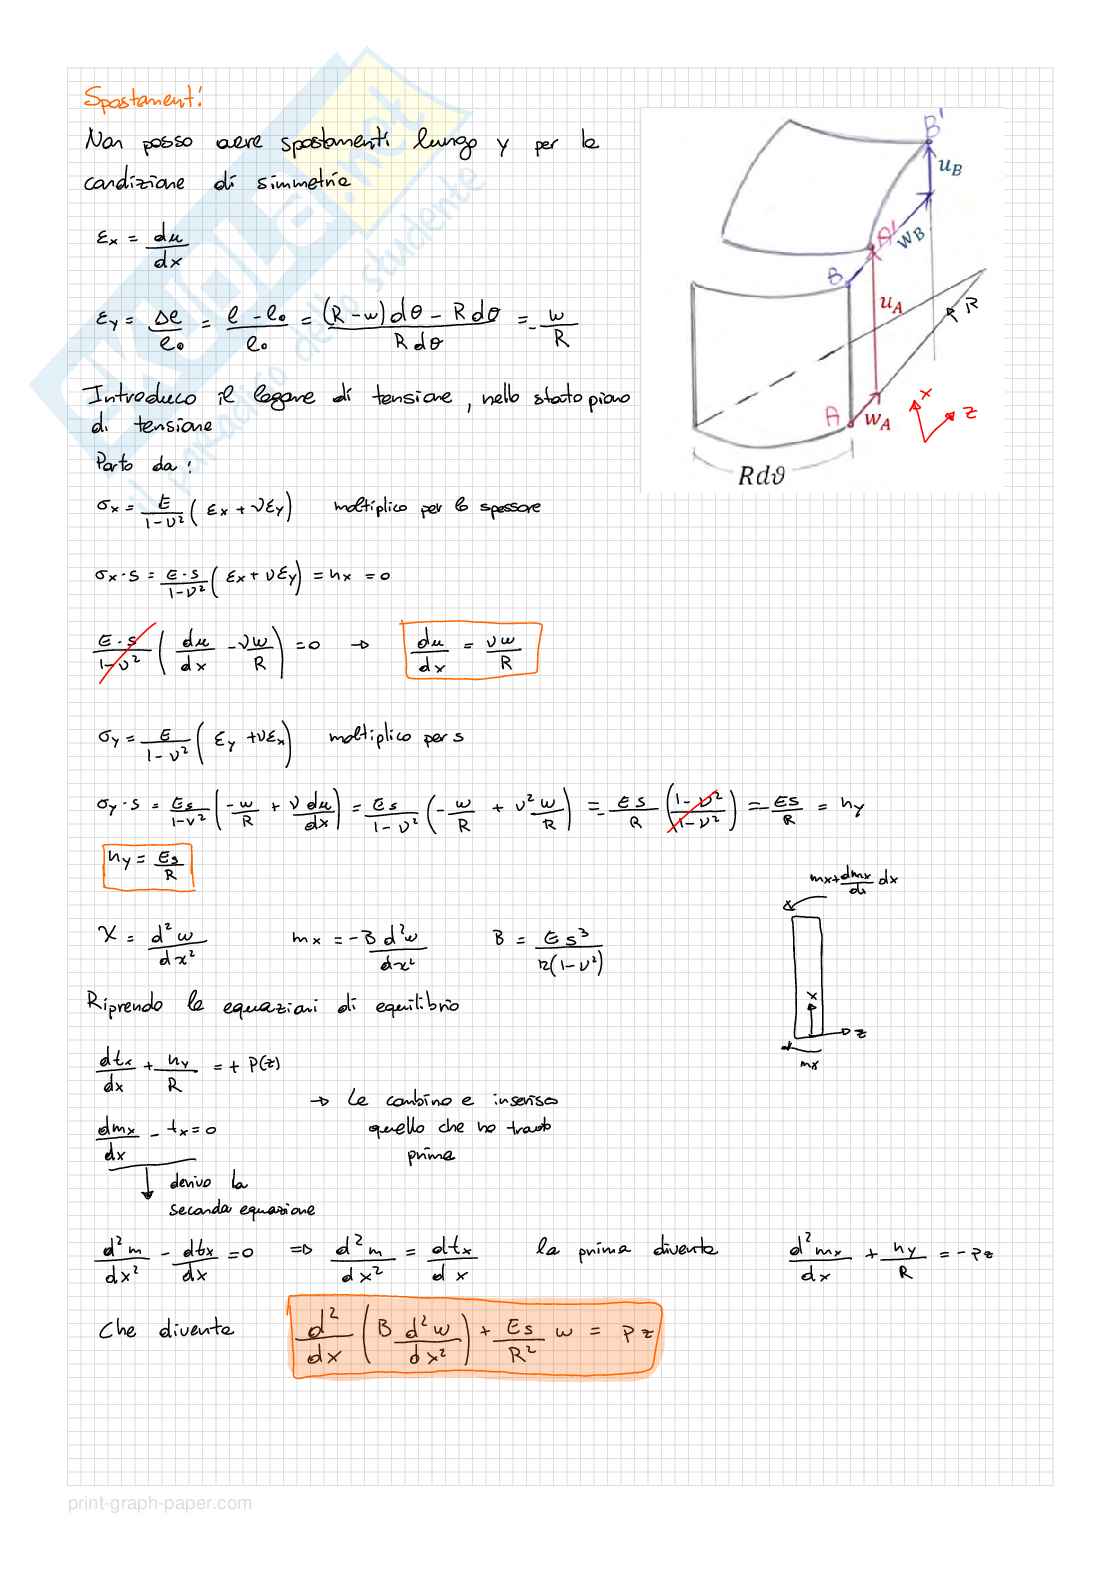 Spostamenti
Non posso avere spostamenti lungo y per la
condizione di simmetria
εx = du/dx
εy = Δl/l₀ = l - l₀/l₀ = (R-w)dθ - Rdθ/Rdθ = -w/R
Introduco il legame di tensione, nello stato piano
di tensione
Parto da:
σx = E/1-ν² (εx + νεy) moltiplico per lo spessore
σx·s = E·s/1-ν² (εx + νεy) = nx = 0
E·s/1-ν² (du/dx - νw/R) = 0 → du/dx = νw/R
σy = E/1-ν² (εy + νεx) moltiplico per s
σy·s = Es/1-ν² (-w/R + ν du/dx) = Es/1-ν² (-w/R + ν²w/R) = -Es/R (1-ν²/1-ν²) = -Es/R = ny
ny = Es/R
χ = d²w/dx² mx = -B d²w/dx² B = Es³/12(1-ν²)
Riprendo le equazioni di equilibrio
dtx/dx + ny/R = + P(z)
dmx/dx - tx = 0
→ Le combino e inserisco
quello che ho trovato
prima
↓ derivo la
seconda equazione
d²m/dx² - dtx/dx = 0 ⇒ d²m/dx² = dtx/dx la prima diventa d²mx/dx + ny/R = -Pz
Che diventa d²/dx (B d²w/dx²) + Es/R² w = Pz
B'
uB
A'
wB
B
uA
R
A
wA
x
z
Rdϑ
mx + dmx/dx dx
x
z
mx
SKUOLA.net
il paradiso dello studente
print-graph-paper.com